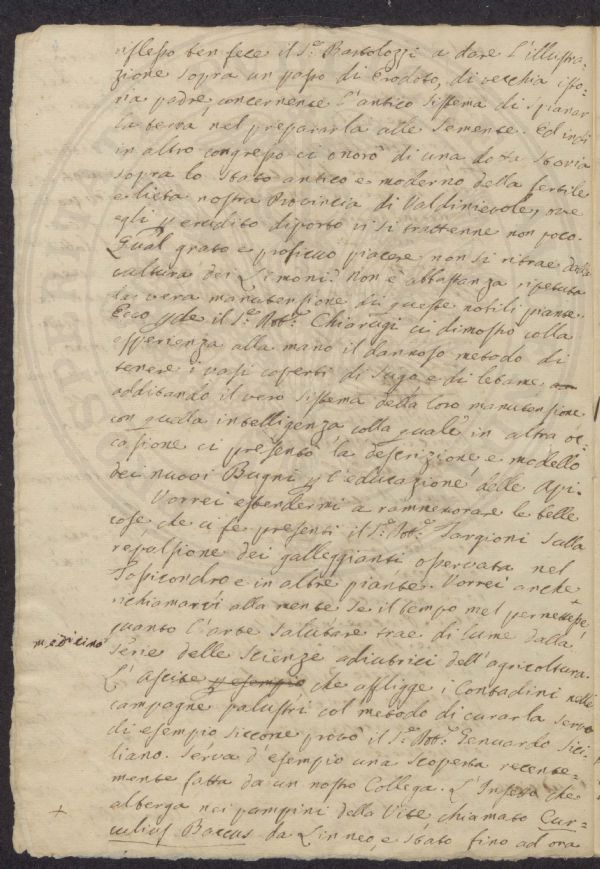 riflesso ben fece il S.r Bartolozzi a dare l'illustra-
zione sopra un passo di Erodoto, di vecchia isto-
ria padre, concernente l'antico sistema di spianar
la terra nel prepararla alle semente. Ed indi
in altro congresso ci onorò di una dotta storia
sopra lo stato antico e moderno della fertile
e lieta nostra Provincia di Valdinievole, ove
egli p erudito diporto vi si trattenne non poco.
Qual grato e proficuo piacere non si ritrae dalla
cultura dei Limoni? Non è abbastanza ripetuta
la vera manutensione di queste nobili piante.
Ecco che il S.r Dott.r Chiarugi ci dimostrò colla
esperienza alla mano il dannoso metodo di
tenere i vasi coperti di sugo e di letame
additando il vero sistema della loro manutensione
con quella intelligenza colla quale in altra oc-
casione ci presentò la descrizione e modello
dei nuovi Bugni p l'educazione delle Api.
Vorrei estendermi a rammemorare le belle
cose, che ci fè presenti il S.r Dott.r Targioni sulla
repulsione dei galleggianti osservata nel
Tosicondro e in altre piante. Vorrei anche
richiamarvi alla mente se il tempo mel permettesse
quanto l'arte salutare trae di lume dalla
medicine
serie delle scienze adiutrici dell'agricoltura.
L'ascite p esempio che affligge i Contadini nelle
campagne palustri col metodo di curarla serva
di esempio siccome provò il S.r Dott.r Genuardo Sici-
liano. Serva d'esempio una scoperta recente-
mente fatta da un nostro Collega. L'Insetto che
+ alberga nei pampini della Vite, chiamato Cur-
culius Baccus da Linneo, e stato fino ad ora